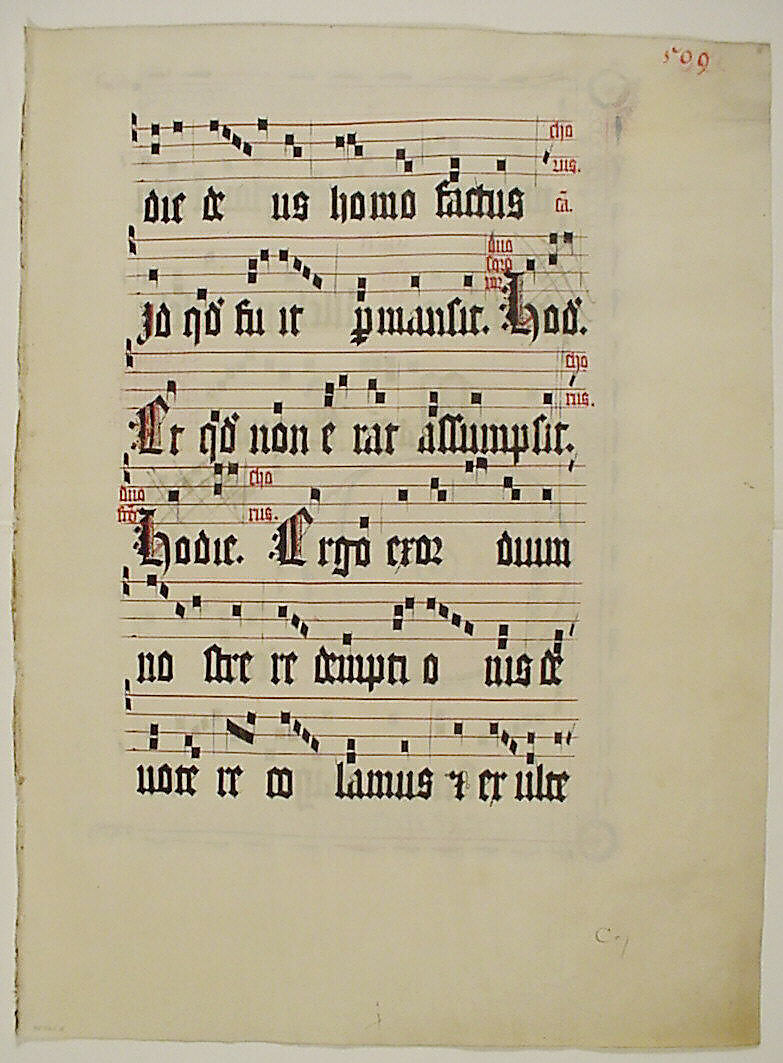 509
cho
die de us homo factus rus.
duo
Id qd fu it pmansit. Hod.
cho
Et qd non e rat assumpsit. rus.
duo cho
Hodie. rus. Ergo exor dium
no stre re dempti o nis de
uote re co lamus ⁊ ex ulte